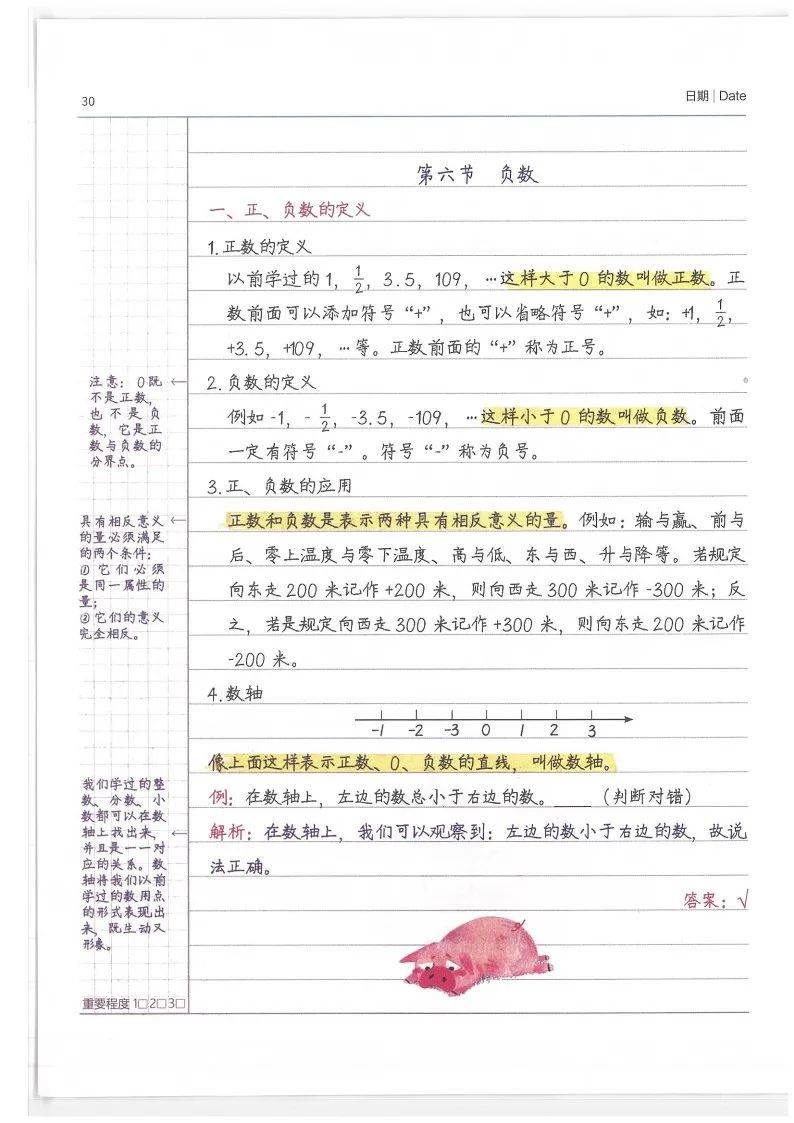 30
日期 | Date
第六节 负数
一、正、负数的定义
1.正数的定义
以前学过的 1, 1/2, 3.5, 109, …这样大于 0 的数叫做正数。正
数前面可以添加符号“+”, 也可以省略符号“+”, 如: +1, 1/2,
+3.5, +109, …等。正数前面的“+”称为正号。
注意: 0既
不是正数,
也不是负
数, 它是正
数与负数的
分界点。
2.负数的定义
例如 -1, - 1/2, -3.5, -109, …这样小于 0 的数叫做负数。前面
一定有符号“-”。符号“-”称为负号。
3.正、负数的应用
具有相反意义
的量必须满足
的两个条件:
① 它们必须
是同一属性的
量;
② 它们的意义
完全相反。
正数和负数是表示两种具有相反意义的量。例如: 输与赢、前与
后、零上温度与零下温度、高与低、东与西、升与降等。若规定
向东走 200 米记作 +200 米, 则向西走 300 米记作 -300 米; 反
之, 若是规定向西走 300 米记作 +300 米, 则向东走 200 米记作
-200 米。
4.数轴
-1 -2 -3 0 1 2 3
像上面这样表示正数、0、负数的直线, 叫做数轴。
我们学过的整
数、分数、小
数都可以在数
轴上找出来,
并且是一一对
应的关系。数
轴将我们以前
学过的数用点
的形式表现出
来, 既生动又
形象。
例: 在数轴上, 左边的数总小于右边的数。____ (判断对错)
解析: 在数轴上, 我们可以观察到: 左边的数小于右边的数, 故说
法正确。
答案: √
重要程度 1□ 2□ 3□